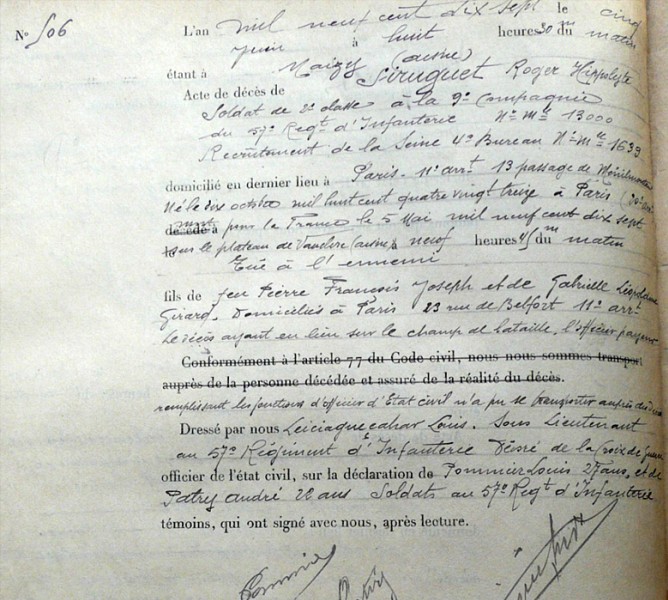 N° 506
L'an mil neuf cent dix sept le cinq
juin à huit heures 30 m du matin
étant à Maizy (aisne)
Acte de décès de Siruguet Roger Hippolyte
Soldat de 2e classe à la 9e Compagnie
du 57e Regt d'Infanterie N° Mle 13000
Recrutement de la Seine 4e Bureau N° Mle 1639
domicilié en dernier lieu à Paris. 11e arrt 13 passage de Ménilmontant
Né le dix octobre mil huit cent quatre vingt treize à Paris
décédé à mort pour la France le 5 Mai mil neuf cent dix sept
le sur le plateau de Vauclerc (aisne) à neuf heures 45 m du matin
Tué à l'ennemi
fils de feu Pierre François Joseph et de Gabrielle Léopoldine
Girard. Domiciliés à Paris 23 rue de Belfort 11e arrt
Le décès ayant eu lieu sur le champ de bataille, l'officier payeur
Conformément à l'article 77 du Code civil, nous nous sommes transporté
auprès de la personne décédée et assuré de la réalité du décès.
remplissant les fonctions d'officier d'Etat civil n'a pu se transporter auprès du
Dressé par nous Louis. Sous Lieutenant
au 57e Régiment d'Infanterie Décoré de la Croix de guerre
officier de l'état civil, sur la déclaration de Pommier Louis 27 ans, et de
Patry André 22 ans Soldats au 57e Regt d'Infanterie
témoins, qui ont signé avec nous, après lecture.
Pommier
Patry